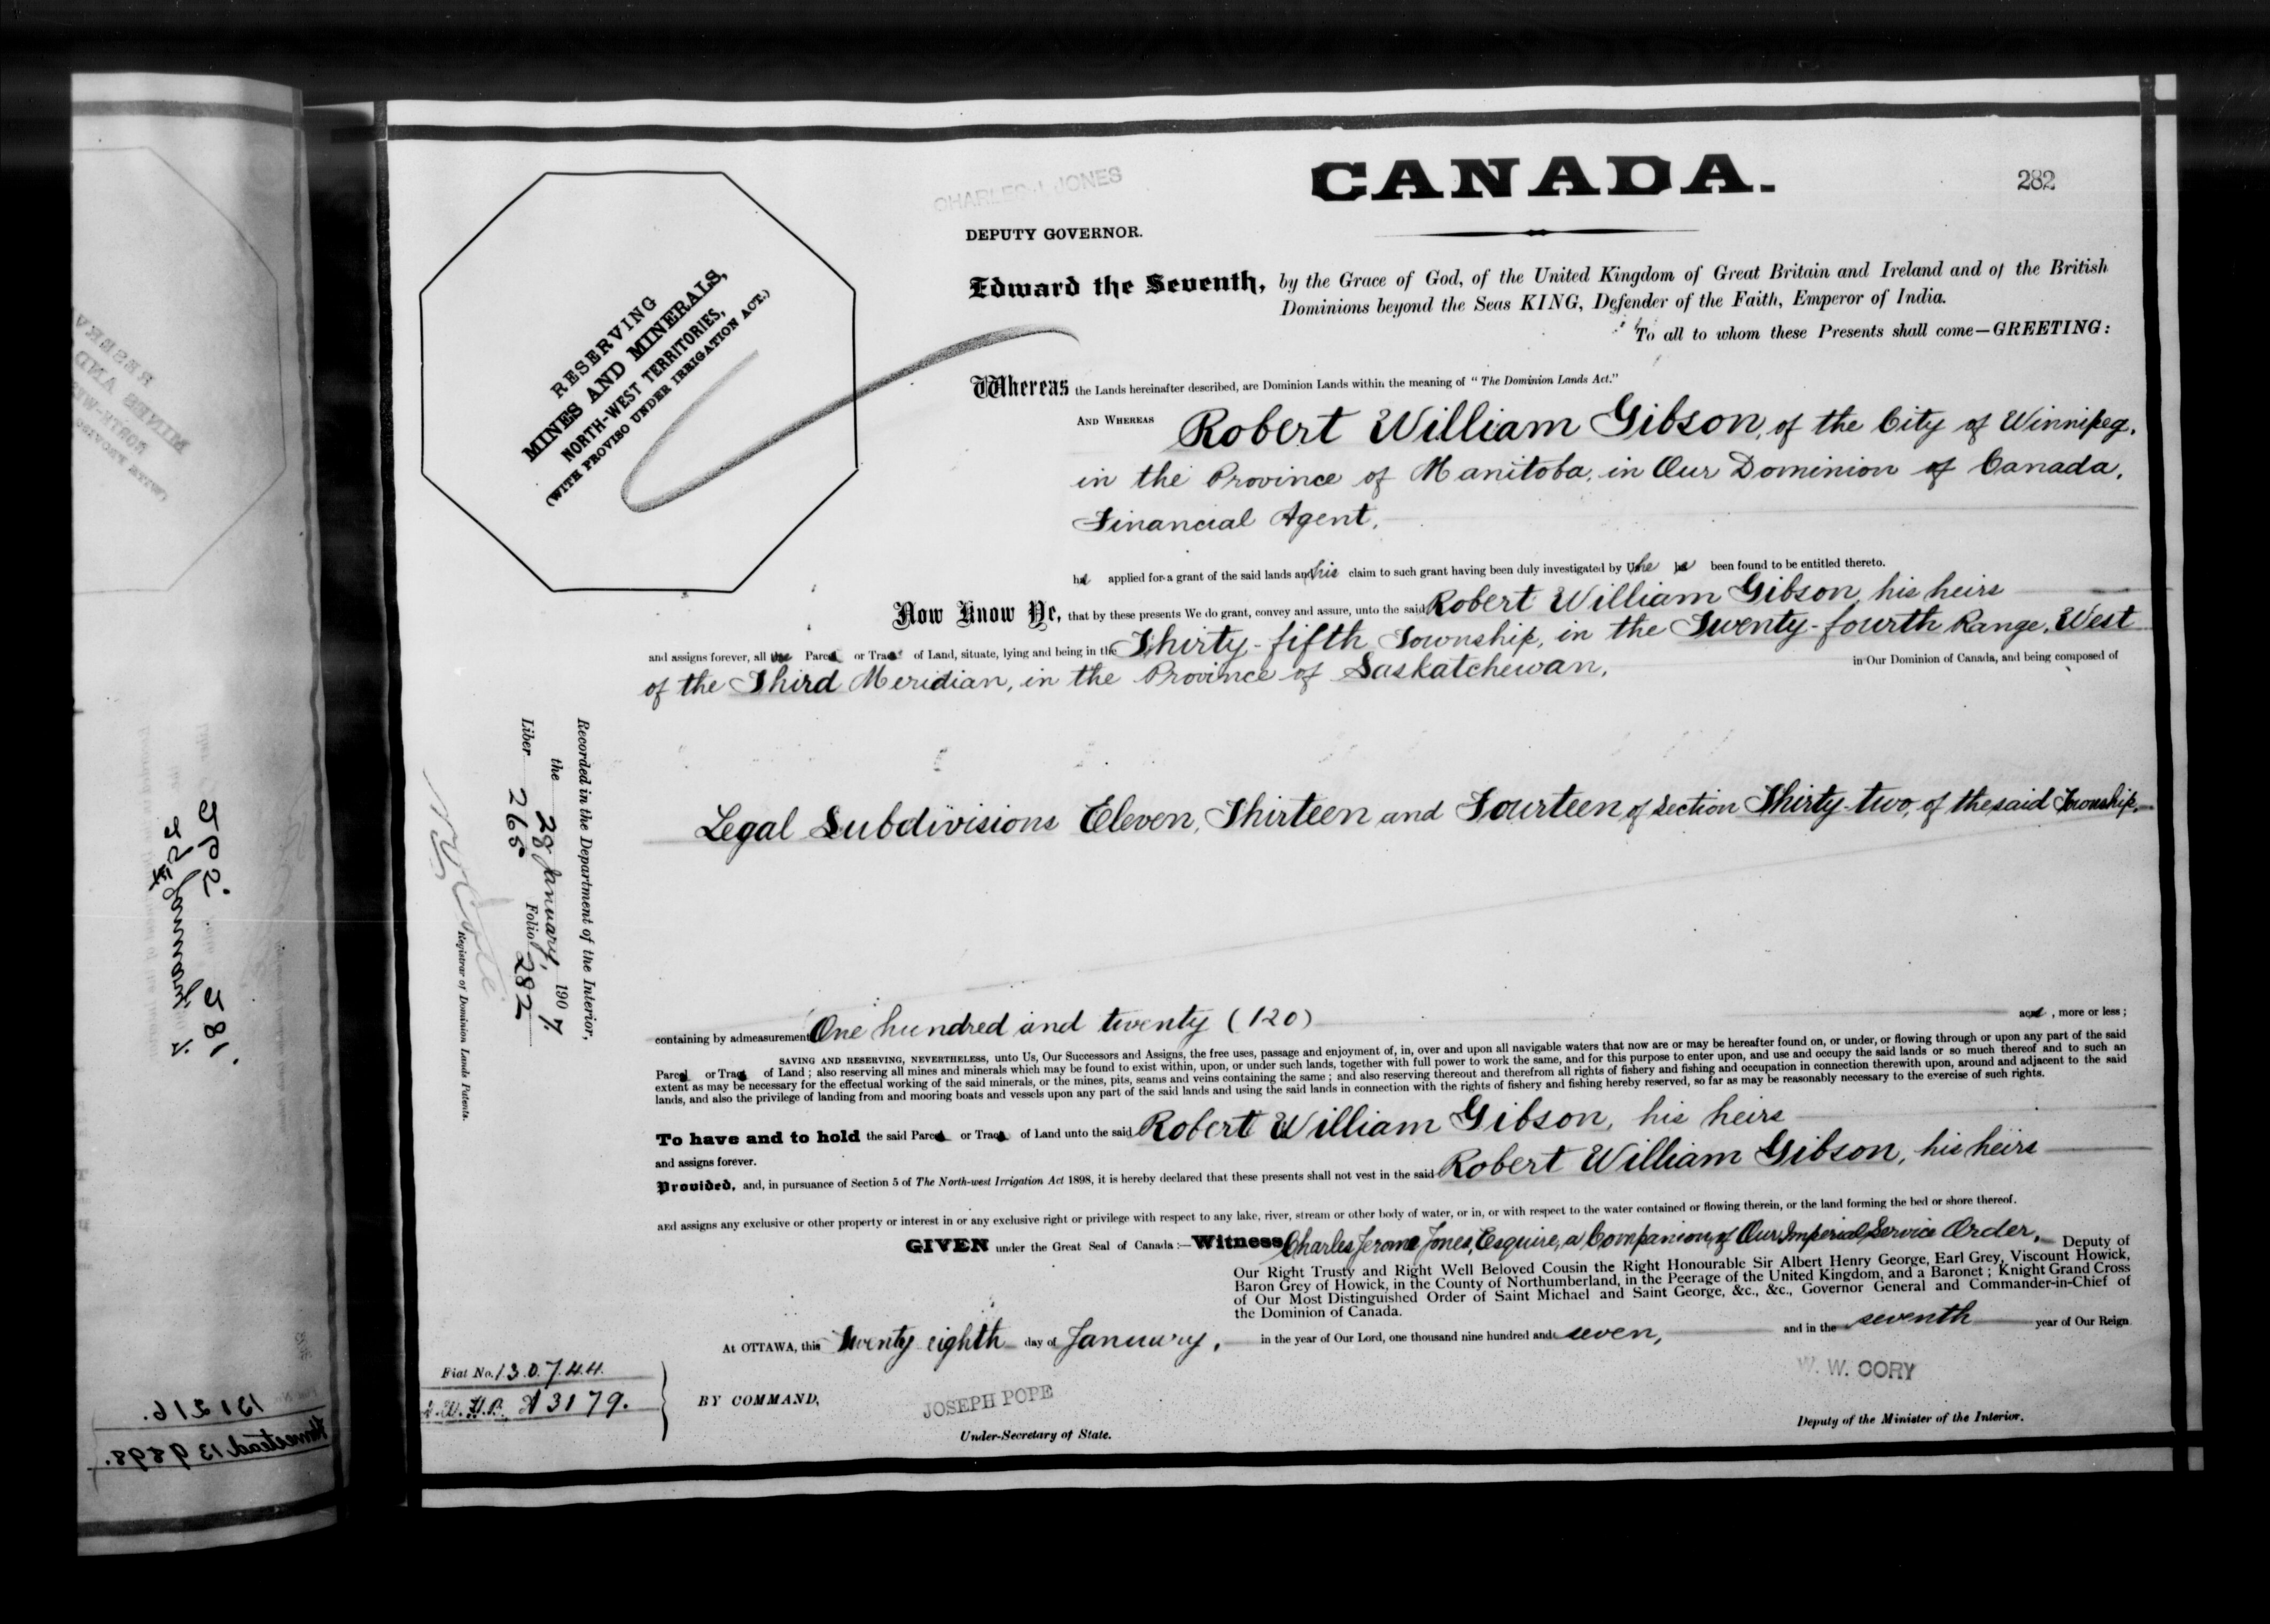 CANADA.
282
CHARLES J JONES
DEPUTY GOVERNOR.
RESERVING
MINES AND MINERALS,
NORTH-WEST TERRITORIES,
(WITH PROVISO UNDER IRRIGATION ACT.)
Edward the Seventh, by the Grace of God, of the United Kingdom of Great Britain and Ireland and of the British
Dominions beyond the Seas KING, Defender of the Faith, Emperor of India.
To all to whom these Presents shall come—GREETING:
Whereas the Lands hereinafter described, are Dominion Lands within the meaning of "The Dominion Lands Act."
AND WHEREAS Robert William Gibson, of the City of Winnipeg,
in the Province of Manitoba, in Our Dominion of Canada,
Financial Agent,
applied for a grant of the said lands and his claim to such grant having been duly investigated by Us he been found to be entitled thereto.
Now Know Ye, that by these presents We do grant, convey and assure, unto the said Robert William Gibson, his heirs
and assigns forever, all Parcel or Tract of Land, situate, lying and being in the Thirty-fifth Township, in the Twenty-fourth Range, West
of the Third Meridian, in the Province of Saskatchewan, in Our Dominion of Canada, and being composed of
Legal Subdivisions Eleven, Thirteen and Fourteen of Section Thirty-two, of the said Township,
Recorded in the Department of the Interior,
the 28 January, 1907.
Liber 265 Folio 282
Registrar of Dominion Lands Patents.
containing by admeasurement One hundred and twenty (120) acres, more or less;
SAVING AND RESERVING, NEVERTHELESS, unto Us, Our Successors and Assigns, the free uses, passage and enjoyment of, in, over and upon all navigable waters that now are or may be hereafter found on, or under, or flowing through or upon any part of the said
Parcel or Tract of Land; also reserving all mines and minerals which may be found to exist within, upon, or under such lands, together with full power to work the same, and for this purpose to enter upon, and use and occupy the said lands or so much thereof and to such an
extent as may be necessary for the effectual working of the said minerals, or the mines, pits, seams and veins containing the same; and also reserving thereout and therefrom all rights of fishery and fishing and occupation in connection therewith upon, around and adjacent to the said
lands, and also the privilege of landing from and mooring boats and vessels upon any part of the said lands and using the said lands in connection with the rights of fishery and fishing hereby reserved, so far as may be reasonably necessary to the exercise of such rights.
To have and to hold the said Parcel or Tract of Land unto the said Robert William Gibson, his heirs
and assigns forever.
Provided, and, in pursuance of Section 5 of The North-west Irrigation Act 1898, it is hereby declared that these presents shall not vest in the said Robert William Gibson, his heirs
and assigns any exclusive or other property or interest in or any exclusive right or privilege with respect to any lake, river, stream or other body of water, or in, or with respect to the water contained or flowing therein, or the land forming the bed or shore thereof.
GIVEN under the Great Seal of Canada:—Witness Charles Jerome Jones, Esquire, a Companion of Our Imperial Service Order, Deputy of
Our Right Trusty and Right Well Beloved Cousin the Right Honourable Sir Albert Henry George, Earl Grey, Viscount Howick,
Baron Grey of Howick, in the County of Northumberland, in the Peerage of the United Kingdom, and a Baronet; Knight Grand Cross
of Our Most Distinguished Order of Saint Michael and Saint George, &c., &c., Governor General and Commander-in-Chief of
the Dominion of Canada.
At OTTAWA, this Twenty eighth day of January, in the year of Our Lord, one thousand nine hundred and seven, and in the seventh year of Our Reign
Fiat No. 130744.
A 3179.
BY COMMAND,
JOSEPH POPE
Under-Secretary of State.
W. W. CORY
Deputy of the Minister of the Interior.